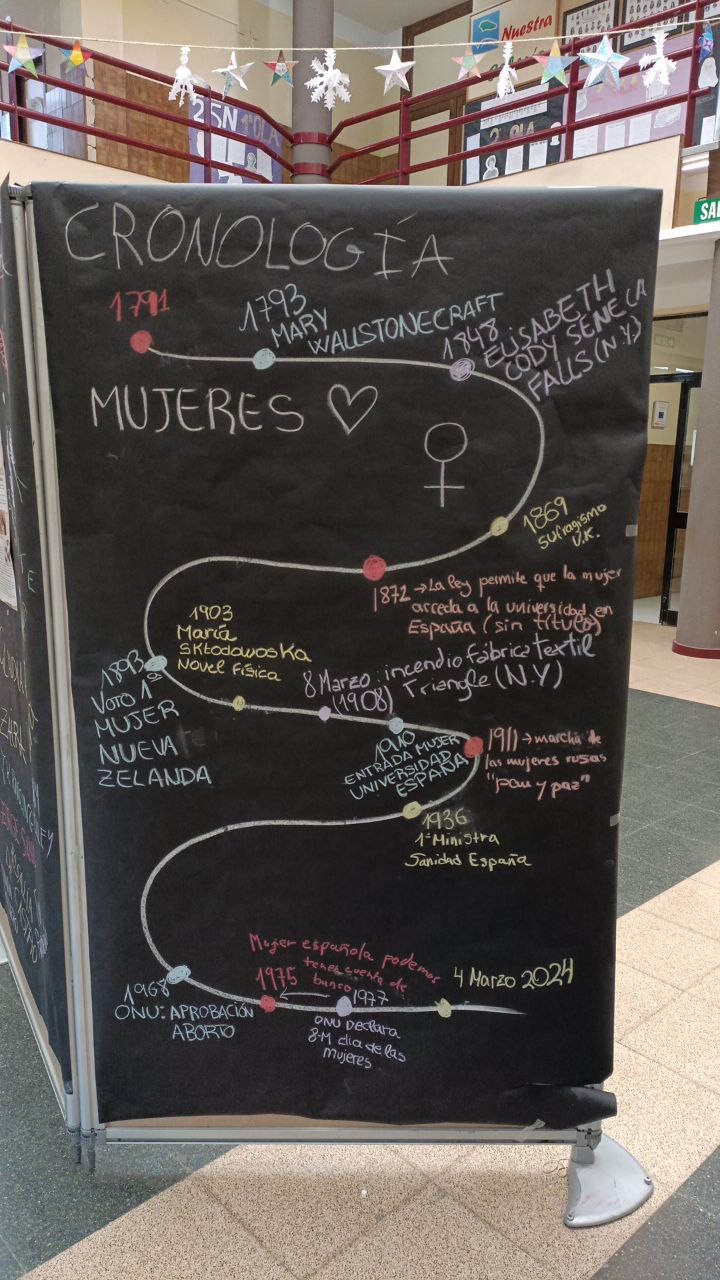 Nuestra
2SN 1ºOLA
SAL
CRONOLOGÍA
1791
1793
MARY
WALLSTONECRAFT
1848
ELISABETH
CODY SENECA
FALLS (N.Y)
MUJERES
1869
Sufragismo
U.K.
1872 → La ley permite que la mujer
acceda a la universidad en
España (sin título)
1893
VOTO 1ª
MUJER
NUEVA
ZELANDA
1903
María
Skłodowoska
Novel física
8 Marzo: incendio fábrica textil
(1908) Triangle (N.Y)
1910
ENTRADA MUJER
UNIVERSIDAD
ESPAÑA
1911 → marcha de
las mujeres rusas
"pan y paz"
1936
1ª Ministra
Sanidad España
1968
ONU: APROBACIÓN
ABORTO
Mujer española podemos
tener cuenta de
banco
1975
1977
ONU Declara
8-M día de las
mujeres
4 Marzo 2024